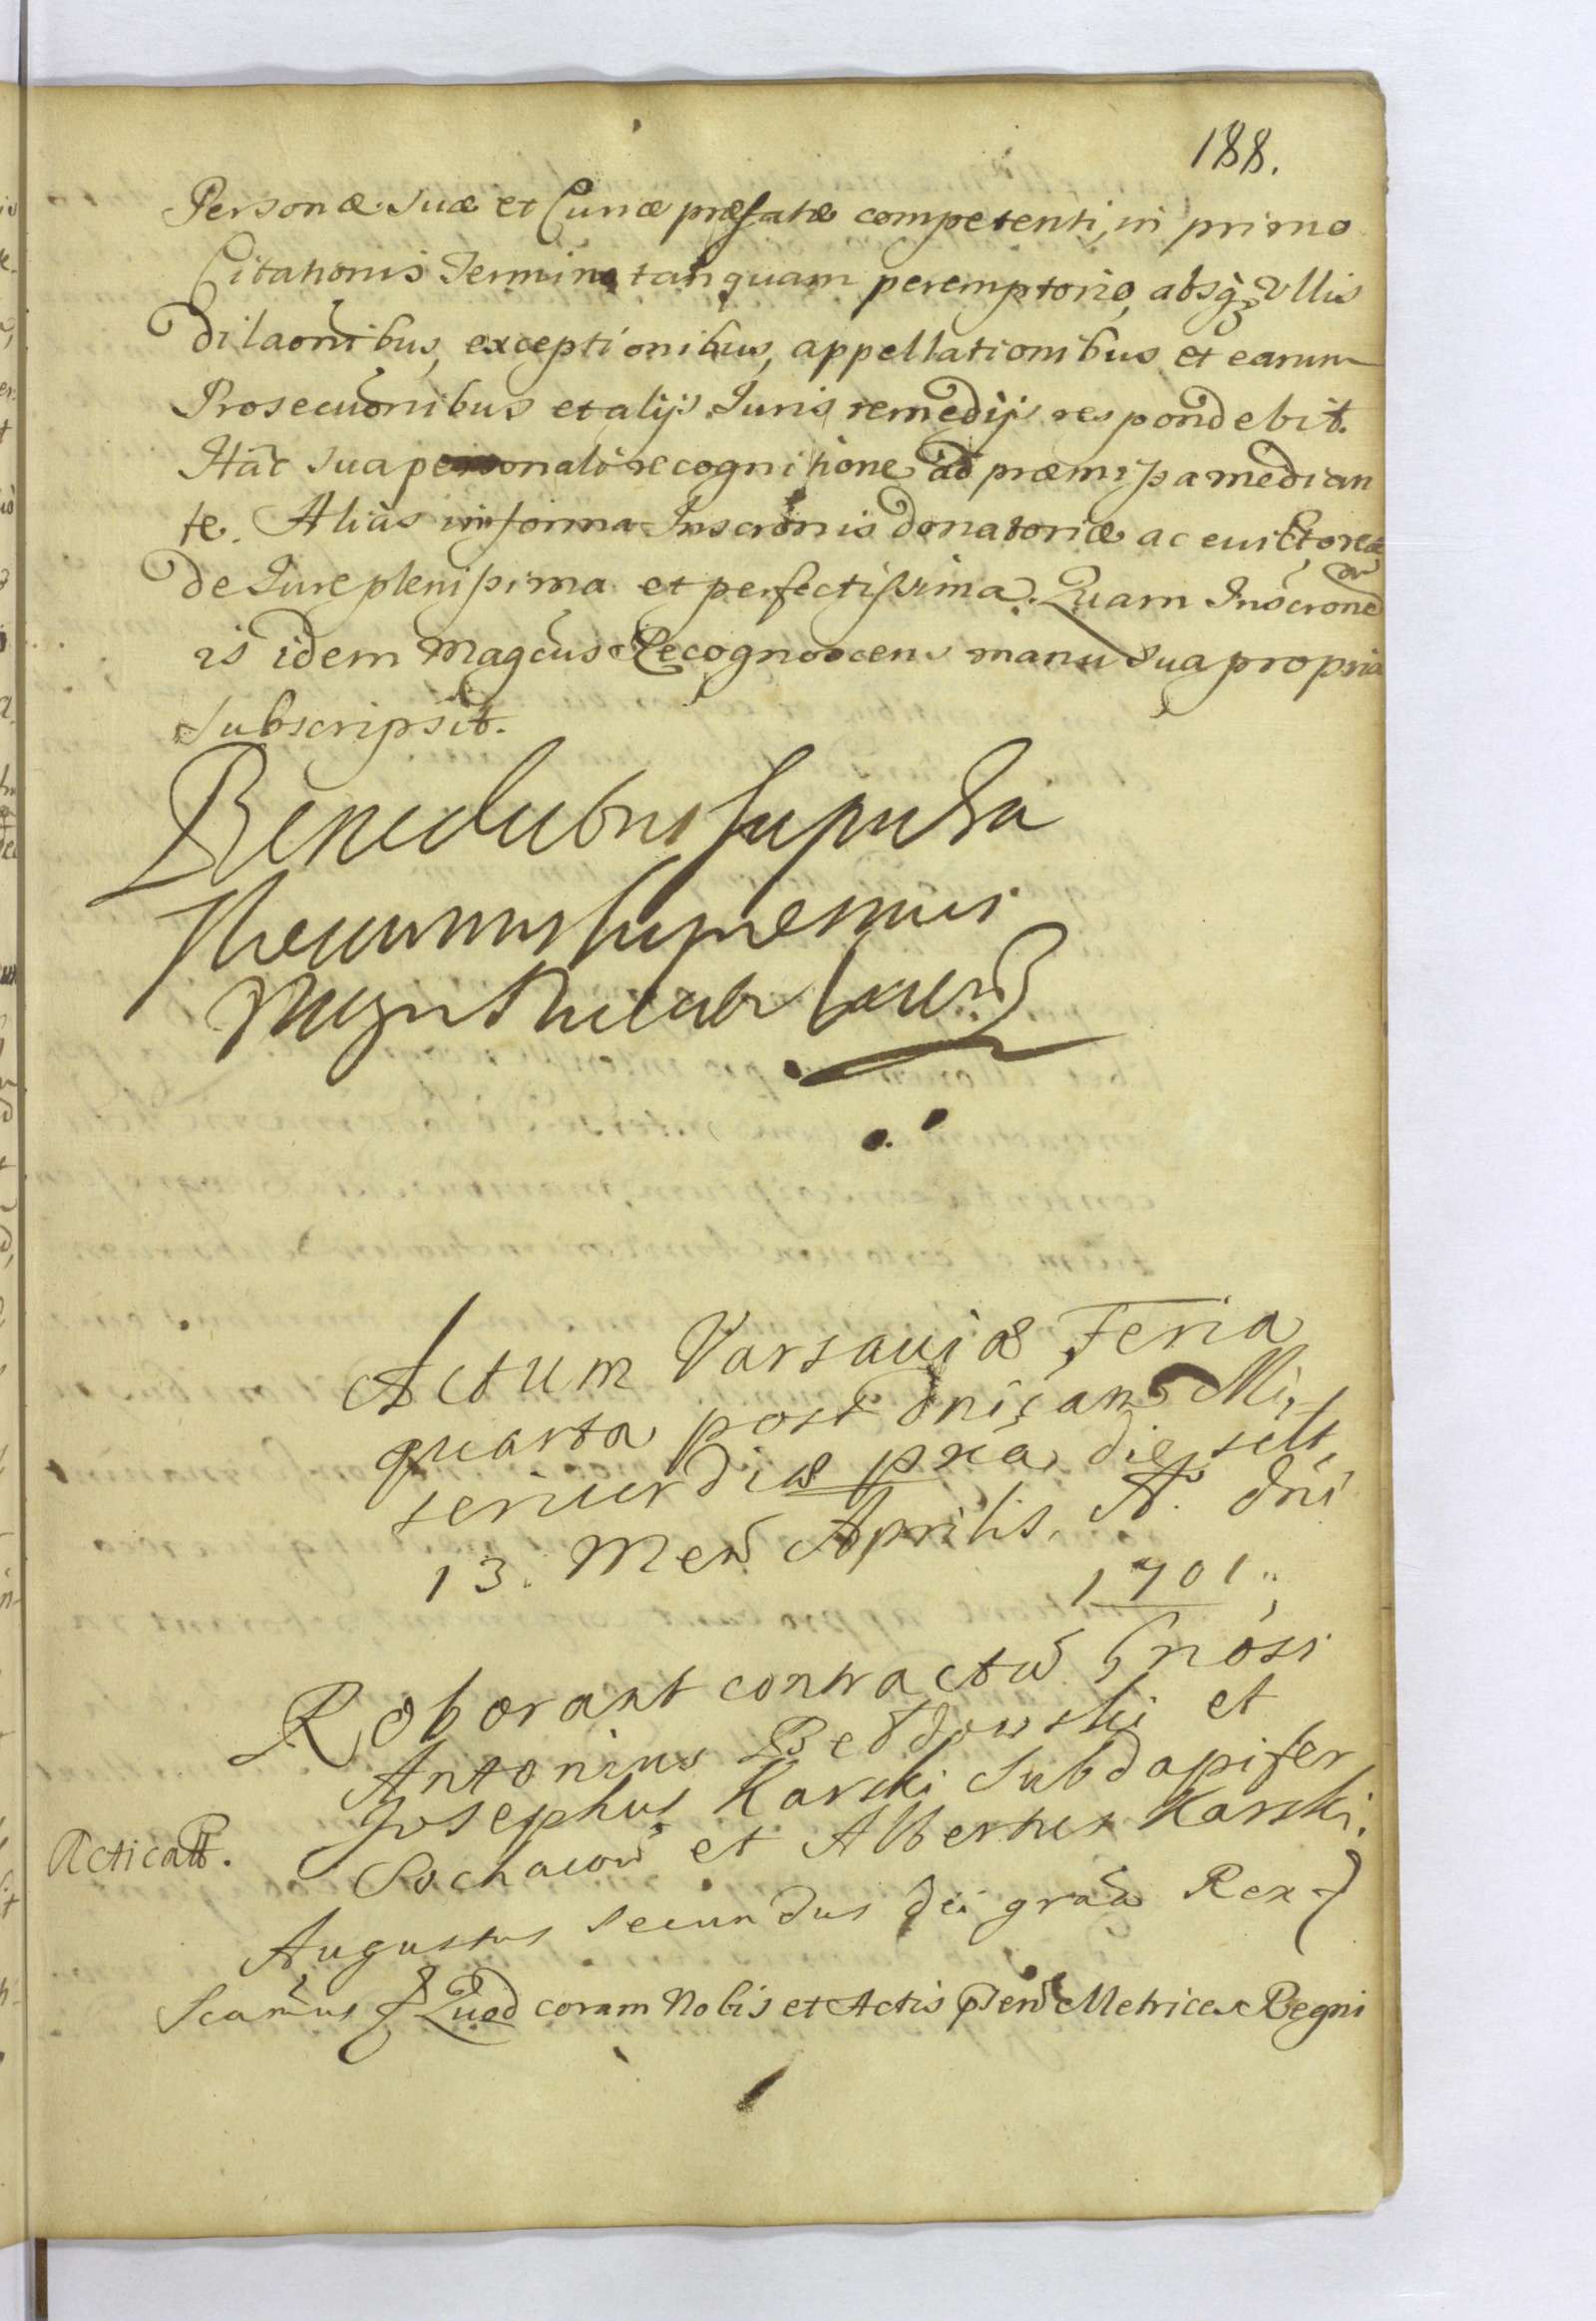 188.
Personæ suæ et Curiæ præfatæ competenti, in primo
Citationis Termino tanquam peremptorio, absq3 Vllis
dilaonibus, exceptionibus, appellationibus et earum
Prosecuonibus et alijs Iuris remedijs respondebit.
Hac sua personali recognitione ad præmissa median
te. Alias in forma Inscronis donatoriæ ac euictoreæ
de Iure plenissima et perfectissima. Quam Inscronem
is idem Magcus Recognoscens manu sua propria
subscripsit.
Benedictus Sapieha
Thesaurarius Supremus
Magni Ducatus
Actum Varsauiæ Feria
quarta post dnicam Mi,
sericordiæ pxia, die scilt,
13. Mens Aprilis, Ao. dni
1701.
Roborant contractu Gnosi
Antonius Bedowski et
Josephus Karski Subdapifer
Sochacou et Albertus Karski.
Acticatt.
Augustus Secundus dei gratia Rex
Scamus Quod coram Nobis et Actis psen Metrices Regni